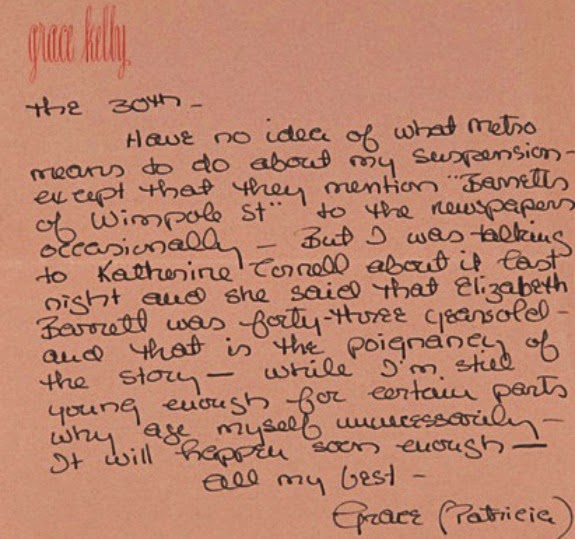 grace kelly
the 30th -
Have no idea of what Metro
means to do about my suspension -
except that they mention "Barretts
of Wimpole St" to the newspapers
occasionally - But I was talking
to Katherine Cornell about it last
night and she said that Elizabeth
Barrett was forty-three years old -
and that is the poignancy of
the story - while I'm still
young enough for certain parts
why age myself unnecessarily -
It will happen soon enough -
all my best -
Grace (Patricia)